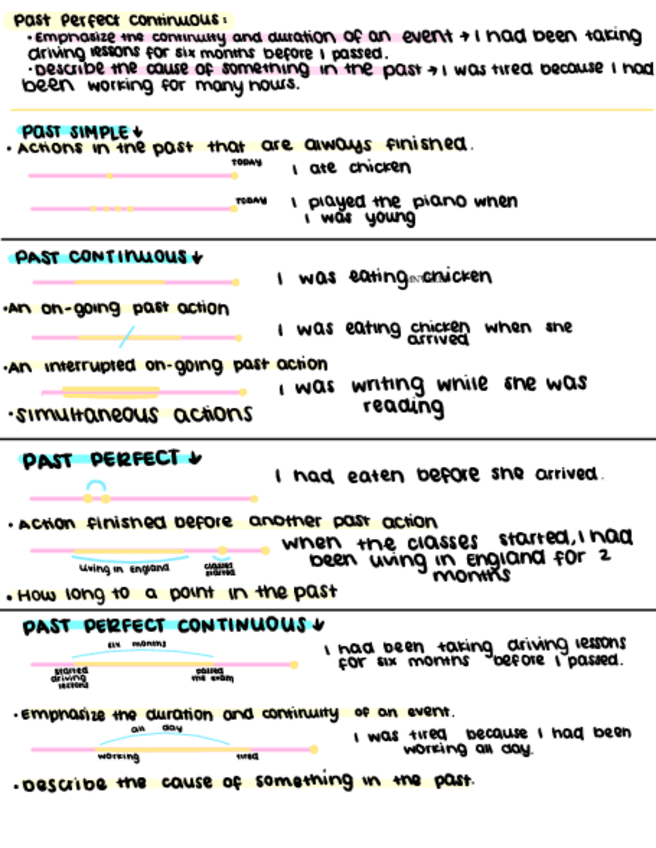 Past Perfect Continuous:
• Emphasize the continuity and duration of an event → I had been taking
driving lessons for six months before I passed.
• Describe the cause of something in the past → I was tired because I had
been working for many hours.
PAST SIMPLE ↓
• Actions in the past that are always finished.
TODAY
I ate chicken
TODAY
I played the piano when
I was young
PAST CONTINUOUS ↓
I was eating chicken
• An on-going past action
I was eating chicken when she
arrived
• An interrupted on-going past action
I was writing while she was
reading
• Simultaneous actions
PAST PERFECT ↓
I had eaten before she arrived.
• Action finished before another past action
When the classes started, I had
been living in England for 2
months
Living in England
classes
started
• How long to a point in the past
PAST PERFECT CONTINUOUS ↓
six months
I had been taking driving lessons
for six months before I passed.
started
driving
lessons
passed
the exam
• Emphasize the duration and continuity of an event.
all day
I was tired because I had been
working all day.
working
tired
• Describe the cause of something in the past.